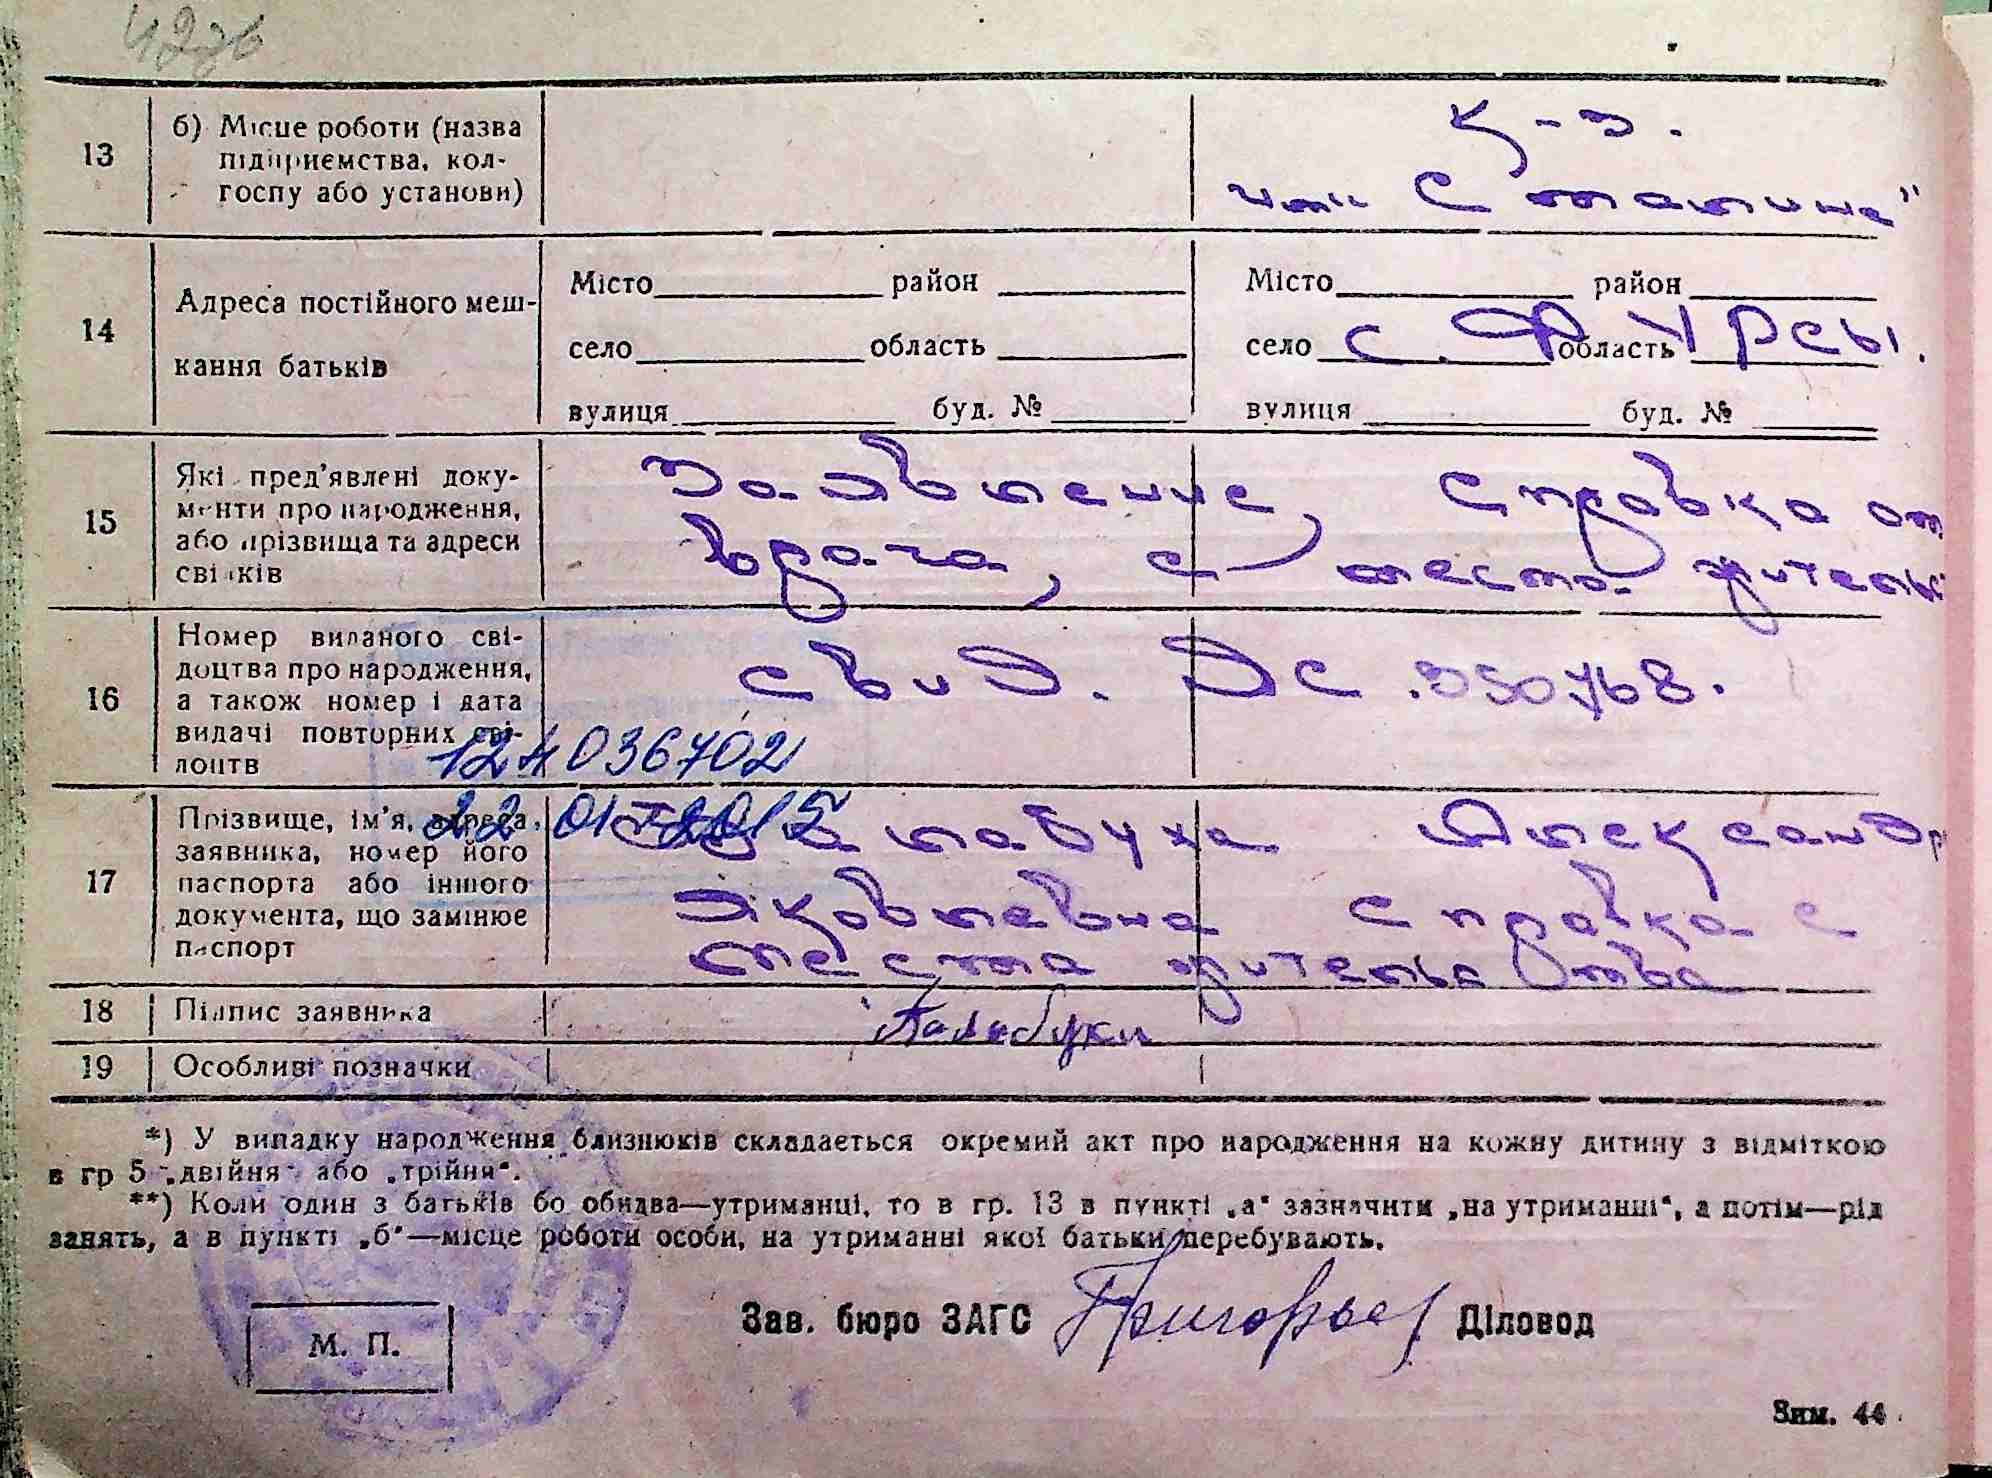 422б
13 б) Місце роботи (назва підприємства, колгоспу або установи)
к-з.
им. Сталина"
14 Адреса постійного мешкання батьків
Місто район Місто район
село область село с. Фурсы. область
вулиця буд. № вулиця буд. №
15 Які пред'явлені документи про народження, або прізвища та адреси свідків
Заявление, справка от
врача, с места житель
16 Номер виданого свідоцтва про народження, а також номер і дата видачі повторних свідоцтв
свид. ЭС . 350768.
124036702
22 01 2015
17 Прізвище, ім'я, адреса заявника, номер його паспорта або іншого документа, що замінює паспорт
Палабуха Александр
Яковлевна справка с
места жительства
18 Підпис заявника
Палабухи
19 Особливі позначки
*) У випадку народження близнюків складається окремий акт про народження на кожну дитину з відміткою
в гр 5 „двійня" або „трійня".
**) Коли один з батьків бо обидва—утриманці, то в гр. 13 в пункті „а" зазначити „на утриманні", а потім—рід
занять, а в пункті „б"—місце роботи особи, на утриманні якої батьки перебувають.
Зав. бюро ЗАГС Григорьев Діловод
М. П.
Зим. 44